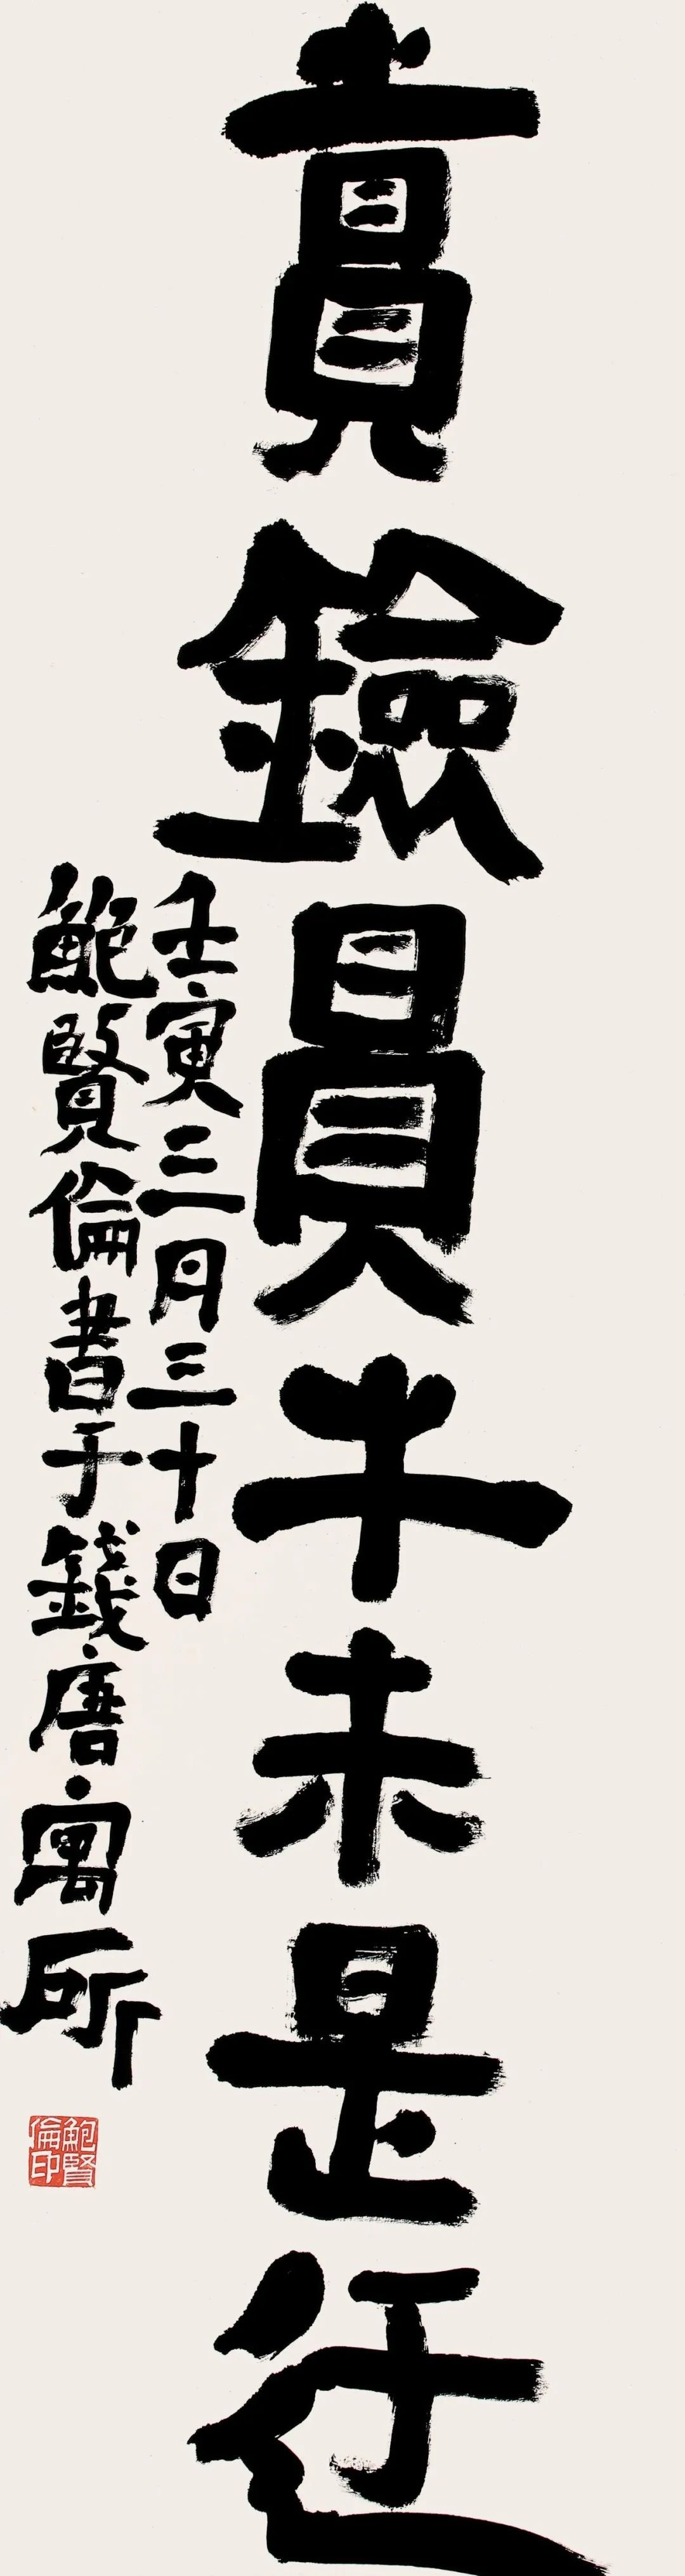 賣鐱買牛未是迂
壬寅三月三十日
鮑賢倫書于錢唐寓所
鮑賢倫印